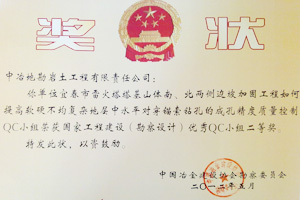 奖状
中冶地勘岩土工程有限责任公司：
你单位宜春市雷火塔塔菜山体南、北两侧边坡加固工程如何
提高软硬不均复杂地层中水平对穿锚索钻孔的成孔精度质量控制
QC小组荣获国家工程建设（勘察设计）优秀QC小组二等奖。
特发此状，以资鼓励。
中国冶金建设协会勘察委员会
二〇一二年五月